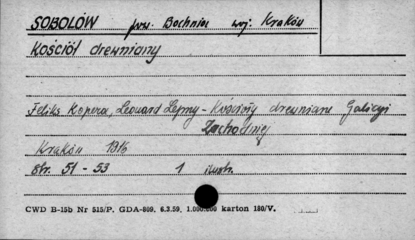 SOBOLÓW pow. Bochnia woj. Kraków
Kościół drewniany
Feliks Kopera, Leonard Lepszy - Kościoły drewniane Galicyi
Zachodniej
Kraków 1916
str. 51 - 53 1 ilustr.
CWD B-15b Nr 515/P, GDA-809, 6.3.59, 1.000.000 karton 180/V.